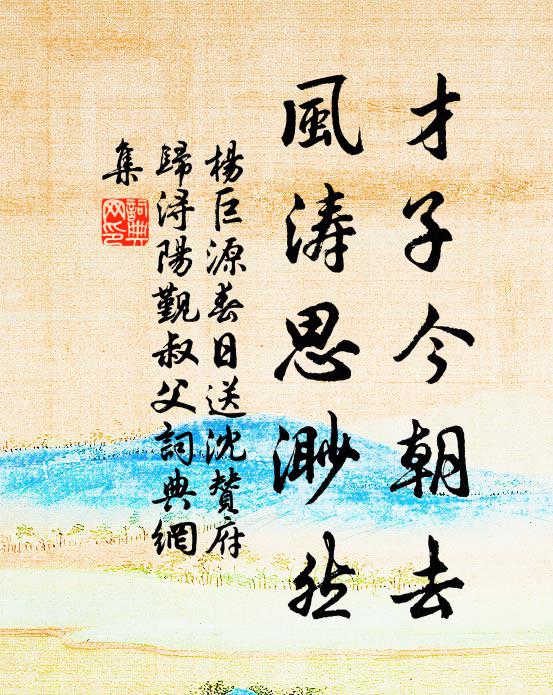 才子今朝去
風濤思渺然
楊巨源春日送沈贊府
歸潯陽覲叔父詞典網
集
詞典
网印